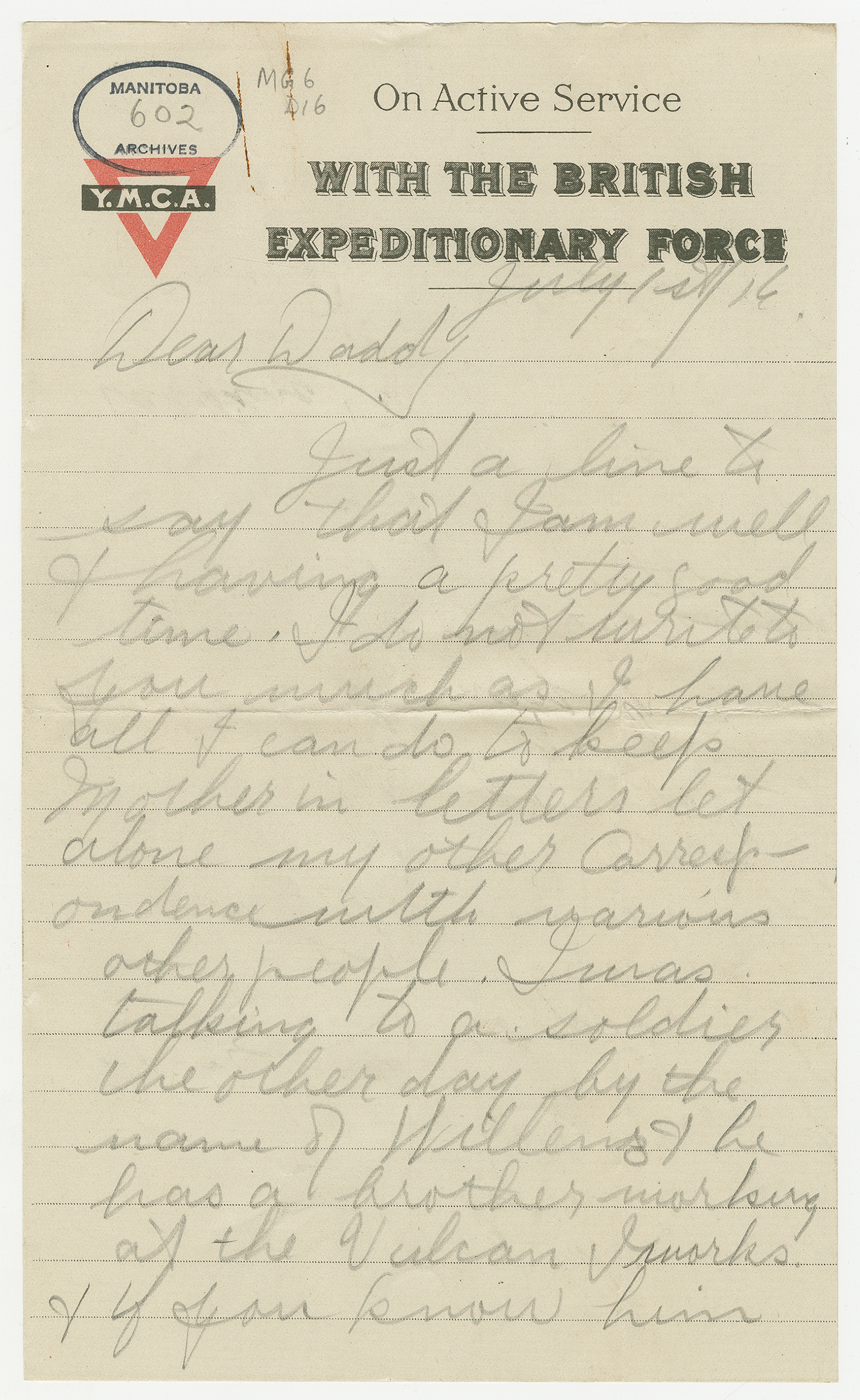 MANITOBA
602
ARCHIVES
MG6
D16
Y.M.C.A.
On Active Service
WITH THE BRITISH
EXPEDITIONARY FORCE
July 1st/16.
Dear Daddy
Just a line to
say that I am well
& having a pretty good
time. I do not write to
you much as I have
all I can do to keep
Mother in letters let
alone my other Corresp-
ondence with various
other people. I was
talking to a soldier
the other day by the
name of & he
has a brother working
at the Vulcan Iworks.
& if you know him